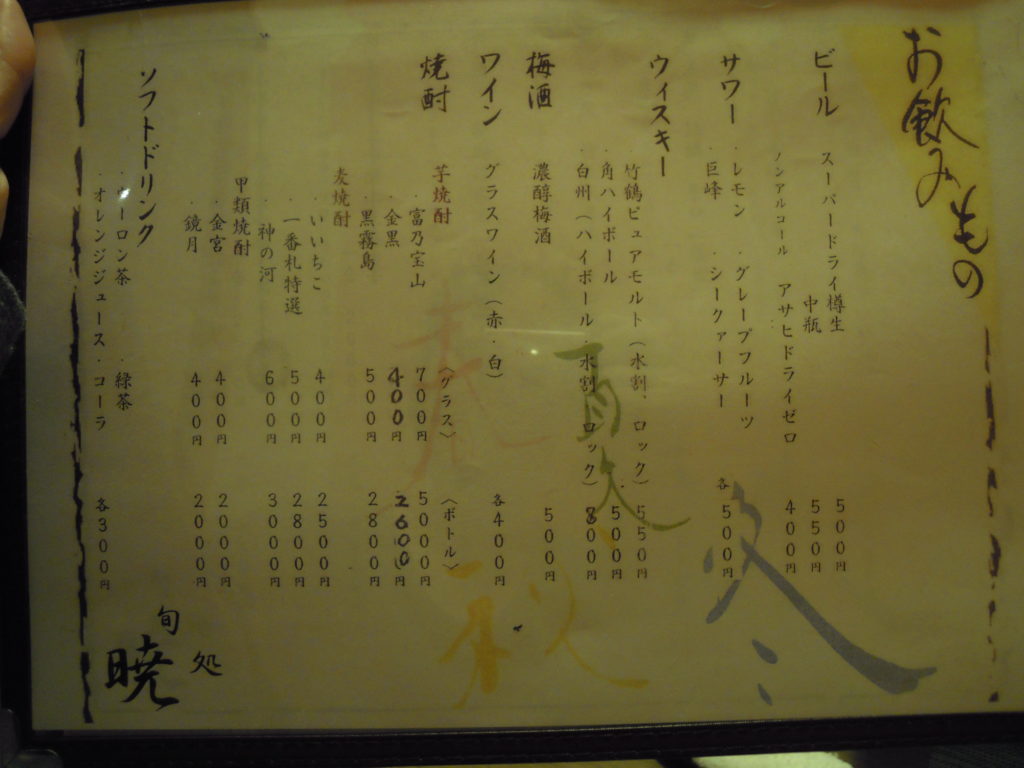 お飲みもの
ビール
スーパードライ樽生 500円
中瓶 550円
ノンアルコール アサヒドライゼロ 400円
サワー
・レモン ・グレープフルーツ 各500円
・巨峰 ・シークァーサー
ウィスキー
竹鶴ピュアモルト(水割・ロック) 550円
・角ハイボール 500円
・白州(ハイボール・水割・ロック) 800円
梅酒
濃醇梅酒 500円
ワイン
グラスワイン(赤・白) 各400円
焼酎
〈グラス〉 〈ボトル〉
芋焼酎
・富乃宝山 700円 5000円
・金黒 400円 2600円
・黒霧島 500円 2800円
麦焼酎
・いいちこ 400円 2500円
・一番札特選 500円 2800円
・神の河 600円 3000円
甲類焼酎
・金宮 400円 2000円
・鏡月 400円 2000円
ソフトドリンク
・ウーロン茶 ・緑茶
・オレンジジュース ・コーラ 各300円
旬処
暁
春
夏
秋
冬